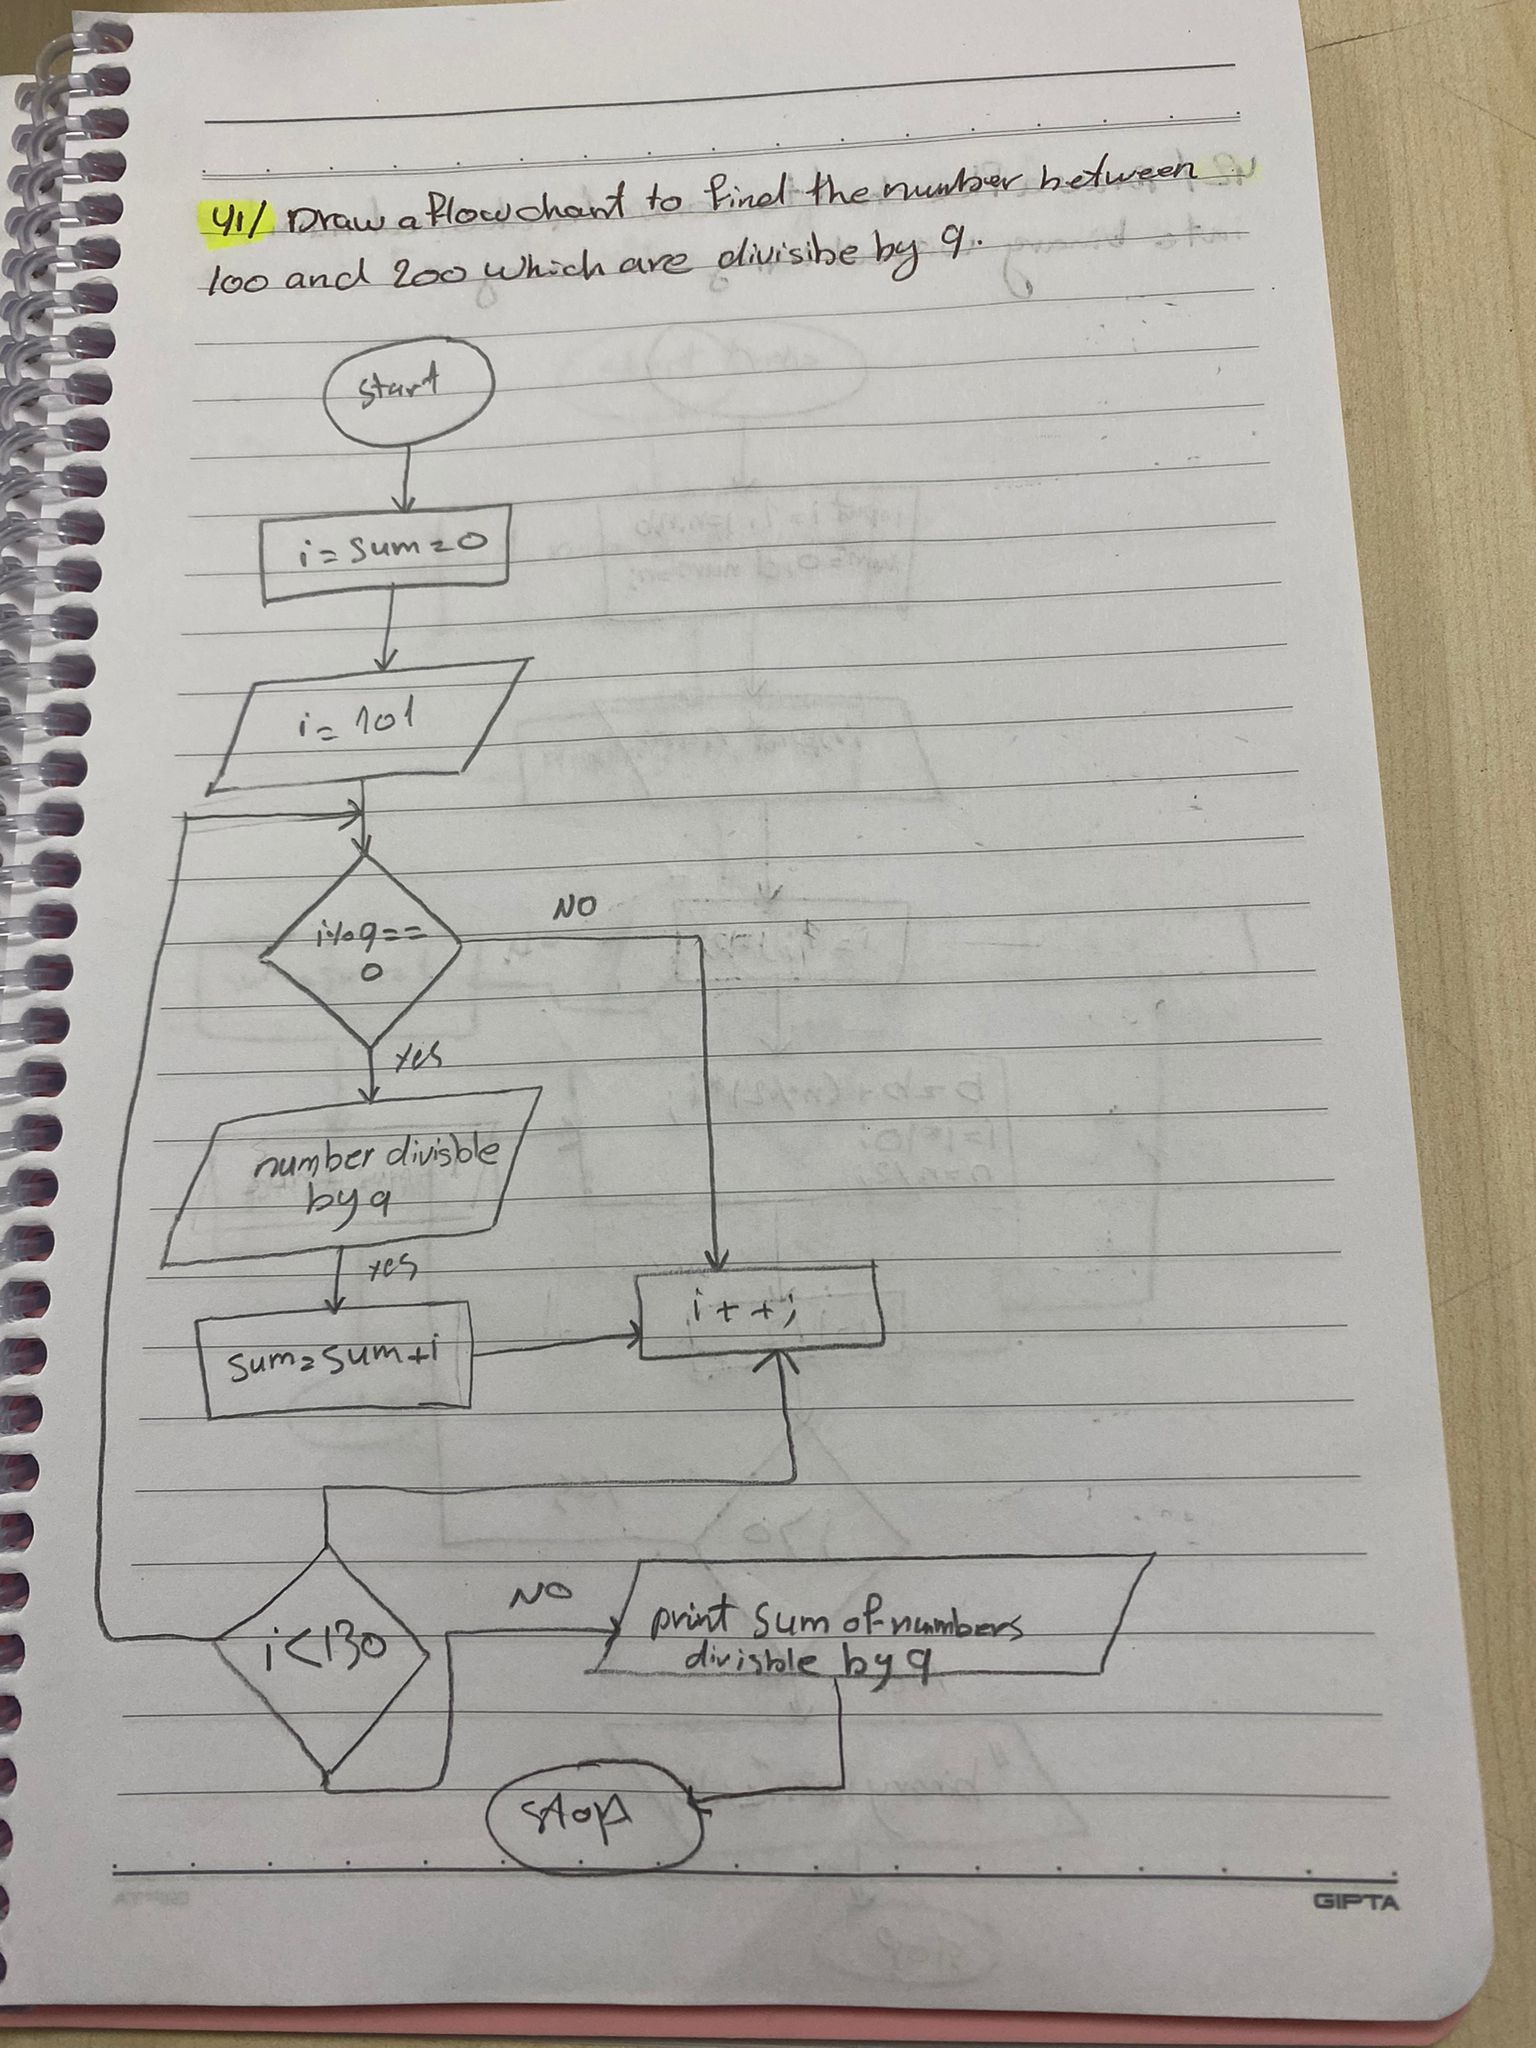 41/ Draw a flowchant to find the number between
100 and 200 which are divisibe by 9.
start
i = sum = 0
i = 101
i % 9 ==
0
NO
yes
number divisble
by 9
yes
sum = sum + i
i + + ;
i < 130
NO
print sum of numbers
divisble by 9
stop
GIPTA